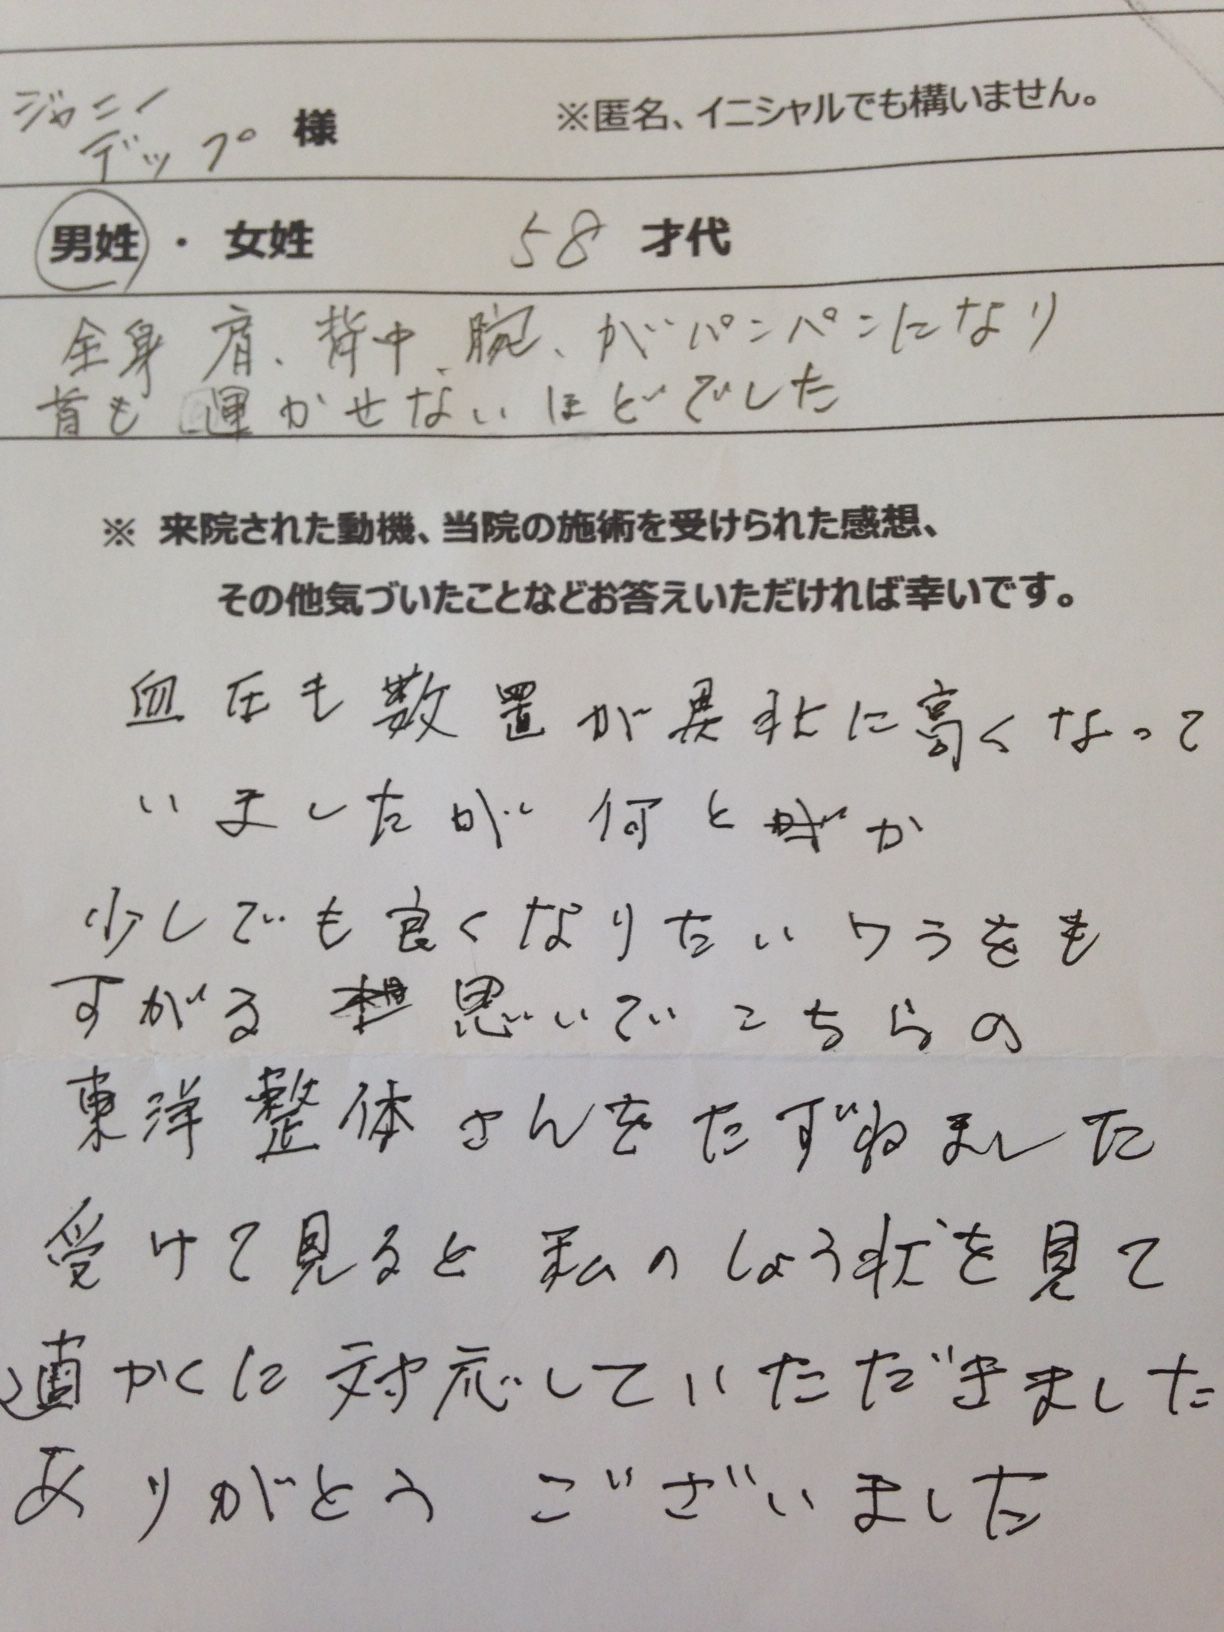 ジャニー
デップ 様 ※匿名、イニシャルでも構いません。
男姓・女姓 58 才代
全身 肩、背中、腕、がパンパンになり
首も 運かせないほどでした
※ 来院された動機、当院の施術を受けられた感想、
その他気づいたことなどお答えいただければ幸いです。
血圧も数置が異状に高くなって
いましたが 何とか
少しでも良くなりたい ワラをも
すがる 思いでこちらの
東洋整体さんをたずねました
受けて見ると 私のしょう状を見て
適かくに対応していただきました
ありがとう ございました